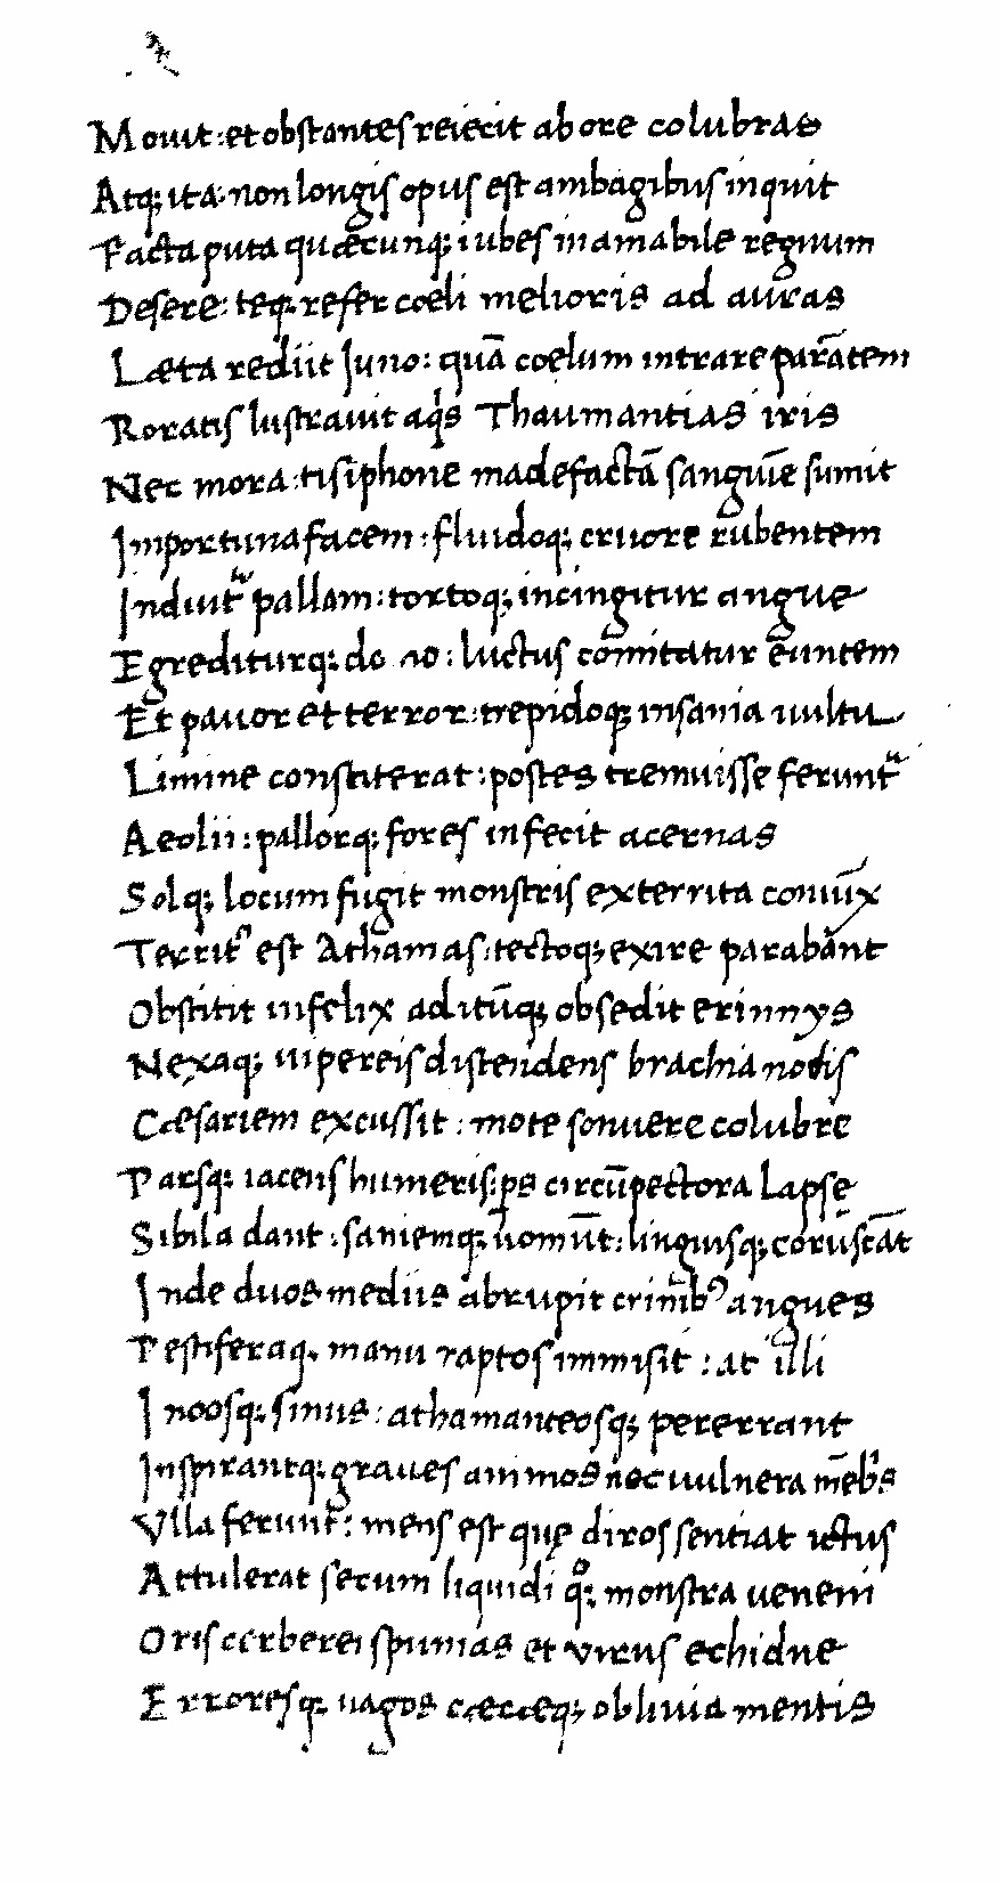 Mouit: et obstantes reiecit ab ore colubras
Atq; ita: non longis opus est ambagibus inquit
Facta puta quæcunq; iubes inamabile regnum
Desere: teq; refer cœli melioris ad auras
Læta rediit Iuno: quā coelum intrare parātem
Roratis lustrauit aqis Thaumantias iris
Nec mora: tisiphone madefactā sanguīe sumit
Importuna facem: fluidoq; cruore rubentem
Induit pallam: tortoq; incingitur angue
Egrediturq; do mo: luctus comitatur euntem
Et pauor et terror: trepidoq; insania uultu
Limine constiterat: postes tremuisse ferunt
Aeolii: pallorq; fores infecit acernas
Solq; locum fugit monstris exterrita coniūx
Territꝰ est Athamas: tectoq; exire parabant
Obstitit infelix aditūq; obsedit erinnys
Nexaq; uipereis distendens brachia nodis
Cæsariem excussit: mote sonuere colubre
Parsq; iacens humeris: ꝑs circū pectora lapsę
Sibila dant: saniemq; uomūt: linguisq; coruscāt
Inde duos mediis abrupit crinibꝰ angues
Pestiferaq; manu raptos immisit: at illi
Inoosq; sinus: athamanteosq; pererrant
Inspirantq; graues animos nec uulnera mēbris
Vlla ferunt: mens est quę diros sentiat ictus
Attulerat secum liquidi qoq; monstra ueneni
Oris cerberei spumas et virus echidne
Erroresq; uagos cæcæq; obliuia mentis